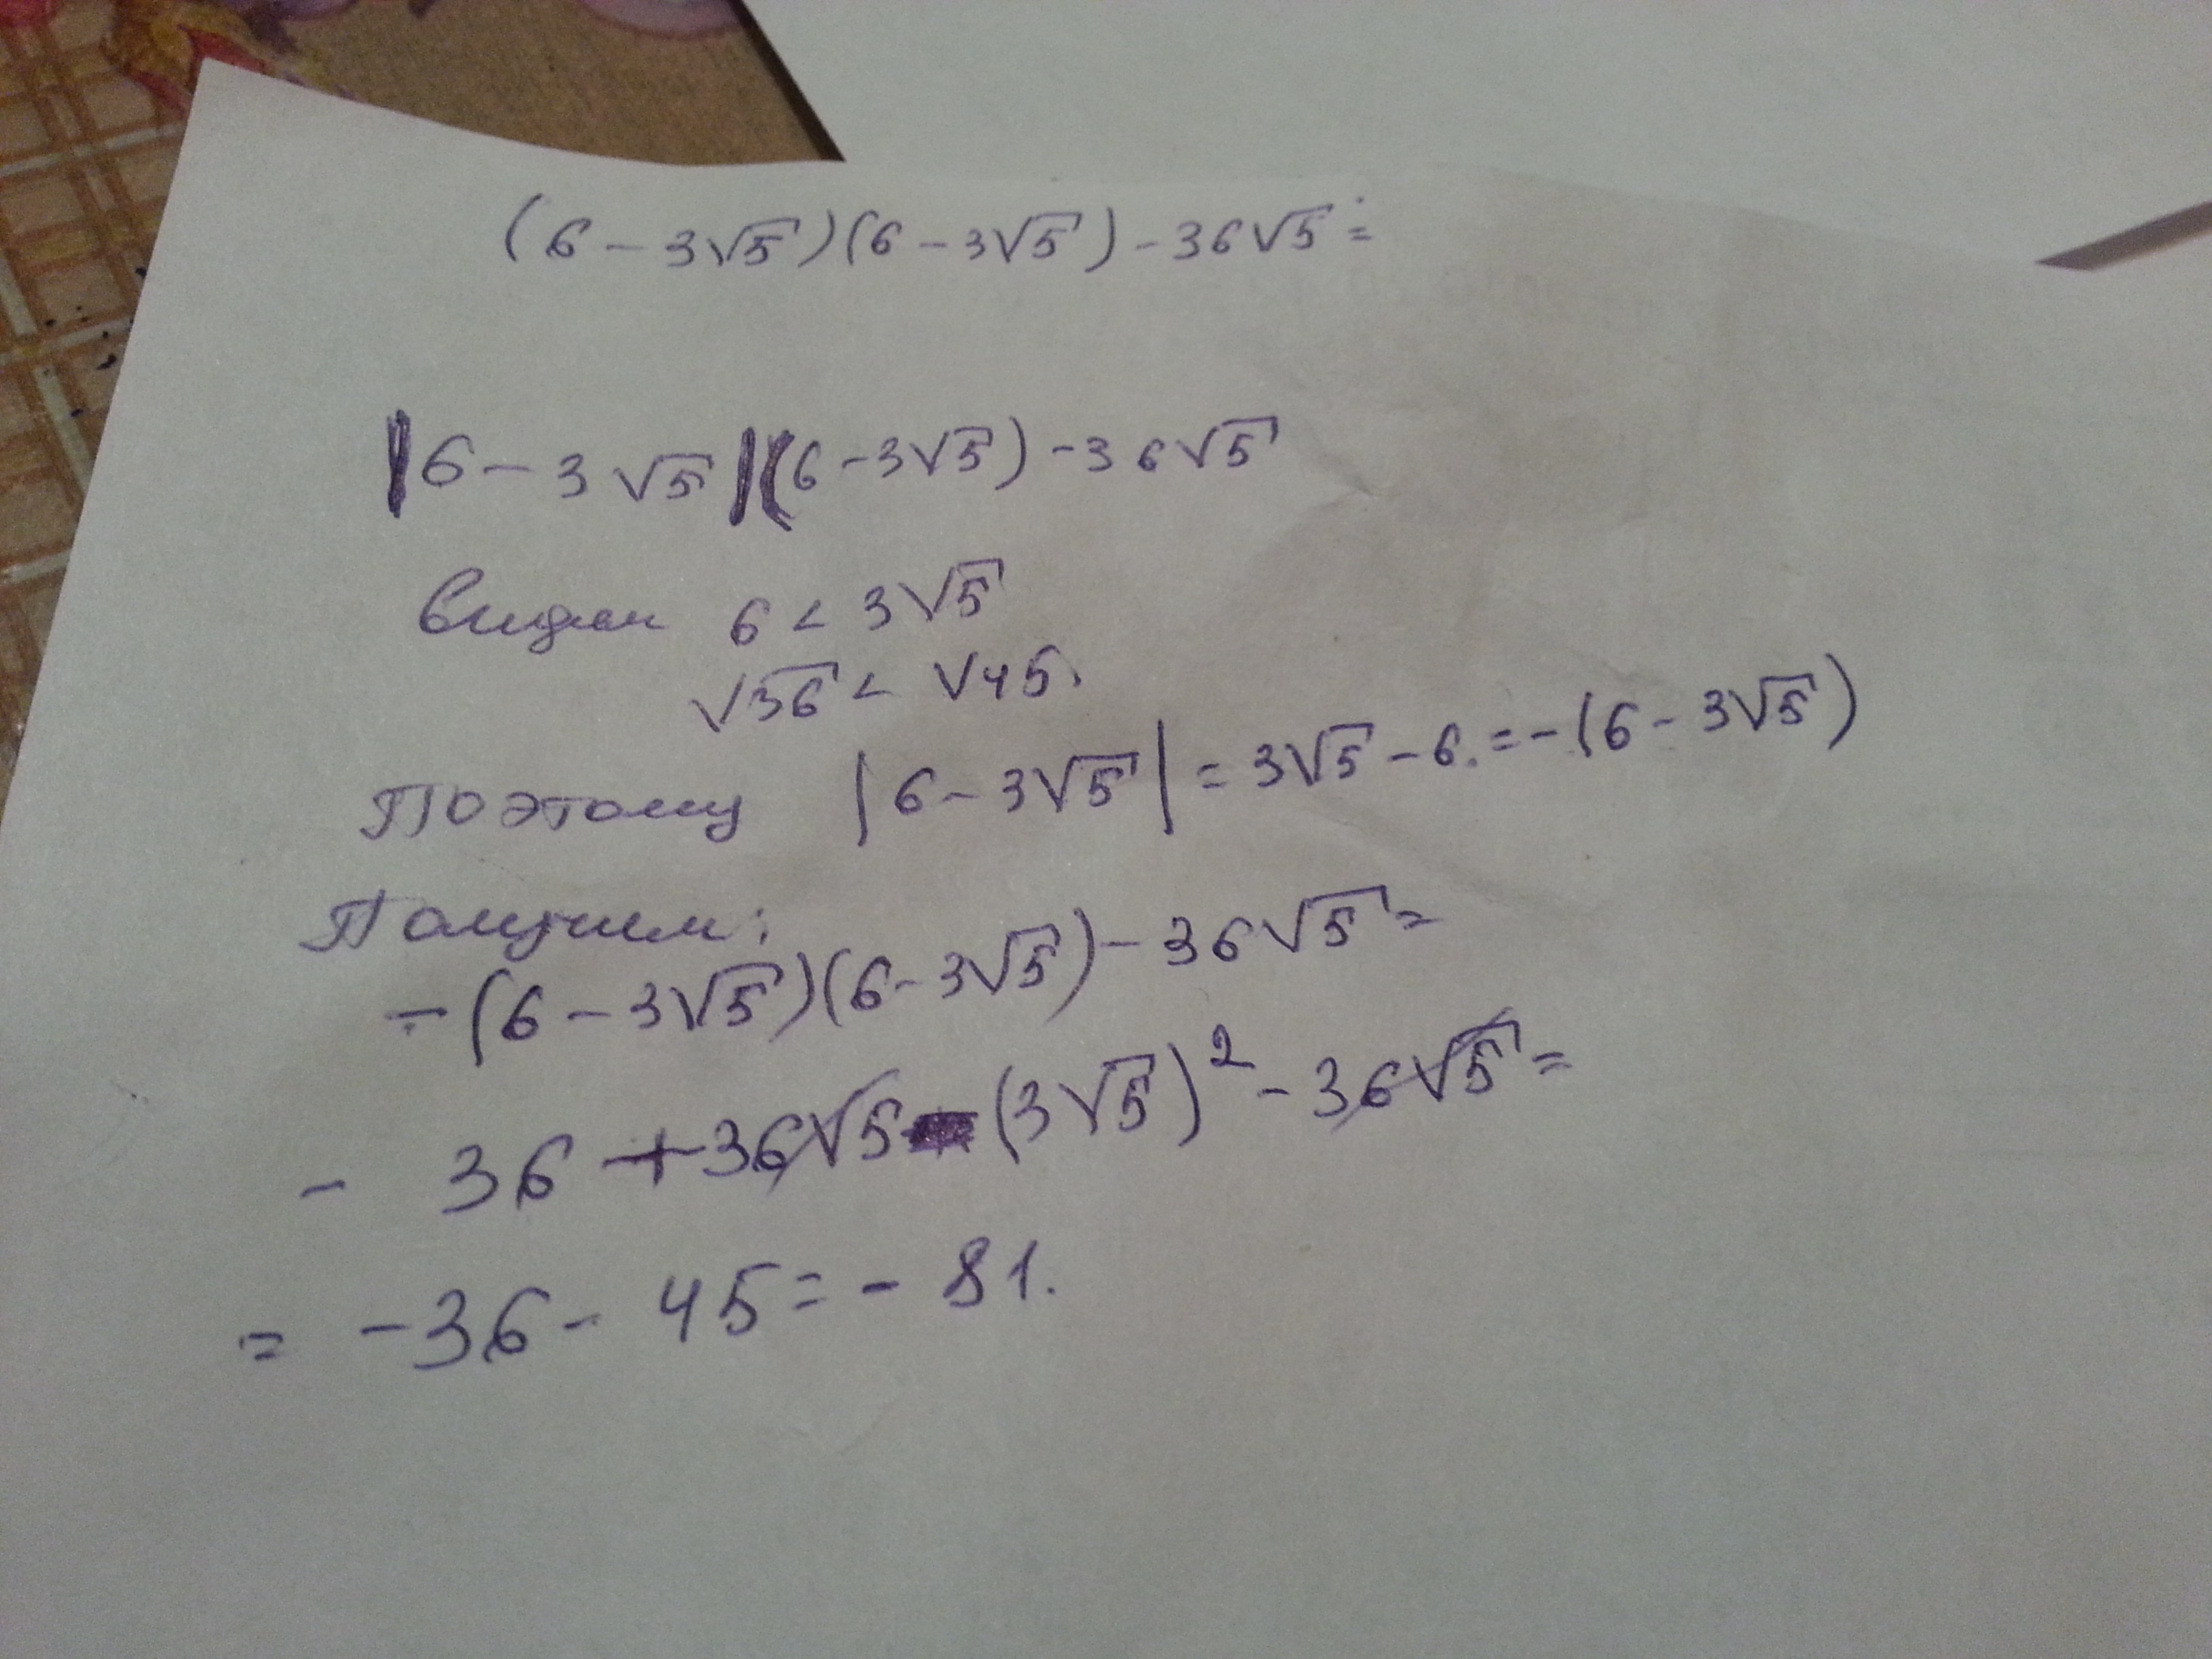 (6 - 3√5)(6 - 3√5) - 36√5 =
|6 - 3√5|(6 - 3√5) - 36√5
видим 6 < 3√5
√36 < √45.
Поэтому |6 - 3√5| = 3√5 - 6. = -(6 - 3√5)
Получим:
-(6 - 3√5)(6 - 3√5) - 36√5 =
- 36 + 36√5 - (3√5)² - 36√5 =
= -36 - 45 = - 81.